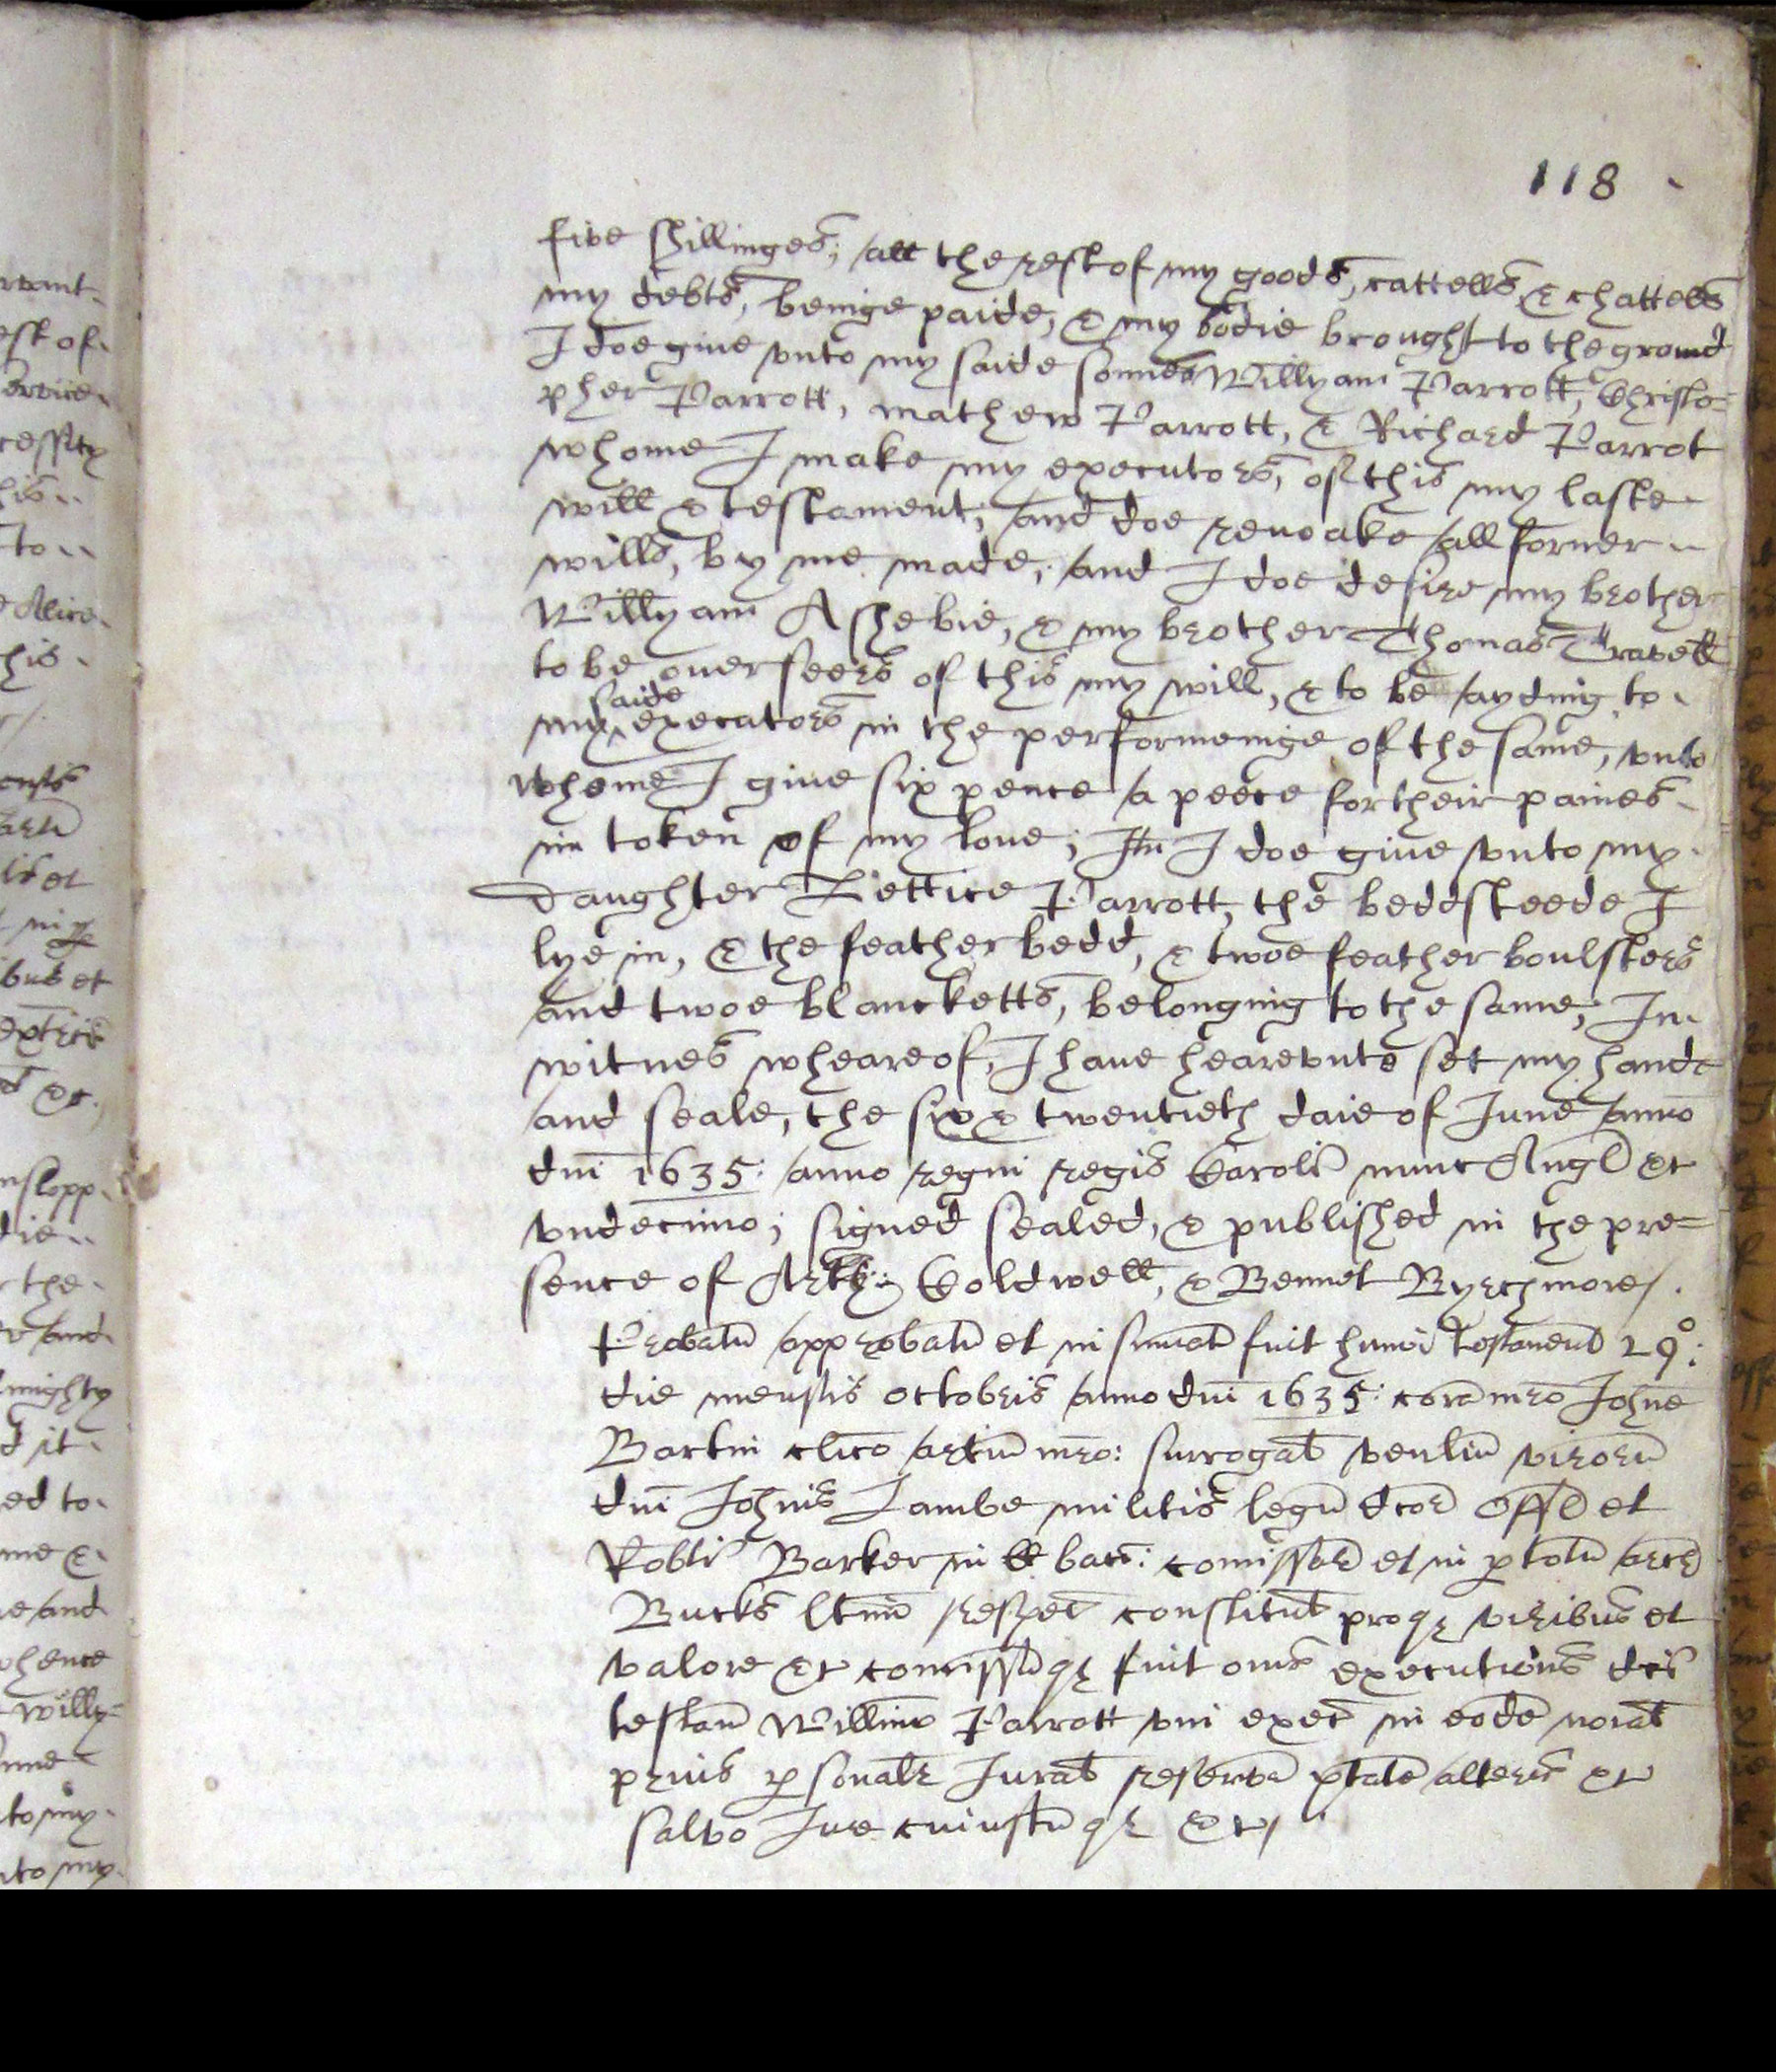 118
five shillinges; all the rest of my goods, cattells, & chattells
my debts, beinge paide, & my bodie brought to the ground
I doe giue vnto my saide sonnes Willyam Parrott, Christo=
pher Parrott, mathew Parrott, & Richard Parrot
whome I make my executors, of this my laste
will & testament; and doe reuoake all former
wills, by me made, and I doe desire my brother
Willyam Ashebie, & my brother Thomas
to be ouerseers of this my will, & to be aydinge to
my saide executors in the performeinge of the same, vnto
whome I giue six pence a peece for their paines
in token of my loue; Itm I doe giue vnto my
daughter Lettice Parrott, the beddsteede I
lye in, & the feather bedd, & twoe feather boulsters
and twoe blancketts, belonging to the same; In
witnes wheareof, I haue hearevnto set my hand
and seale, the six & twentieth daie of June anno
dni 1635: anno regni regis Caroli nunc Angl &c
vndecimo; signed sealed, & published in the pre=
sence of Coldwell, & Bennet Byrchmore/.
Probatu approbatu et insinuat fuit hmoi testament 29º:
die mensis octobris anno dni 1635: cora mro Johne
Bartin clico artiu mro: surrogat venliu viroru
dni Johnis Lambe militis legu dcor offl et
Robti Barker in ll bacc: comissar et in p totu arch
Bucks ltime respec constitut proqz viribus et
valore &c comissaqz fuit onus executionis dci
testam Willimo Parrott vni exec in eode noiat
prius psonalr Jurat reservata ptate alteris &c
salvo Jure cuiuscuqz &c/
rvant
est of
ervice
cessity
his
to
Alice
his
bus et
&c.
the
and
mighty
it
ed to
me &
and
whence
willy=
to my
to my